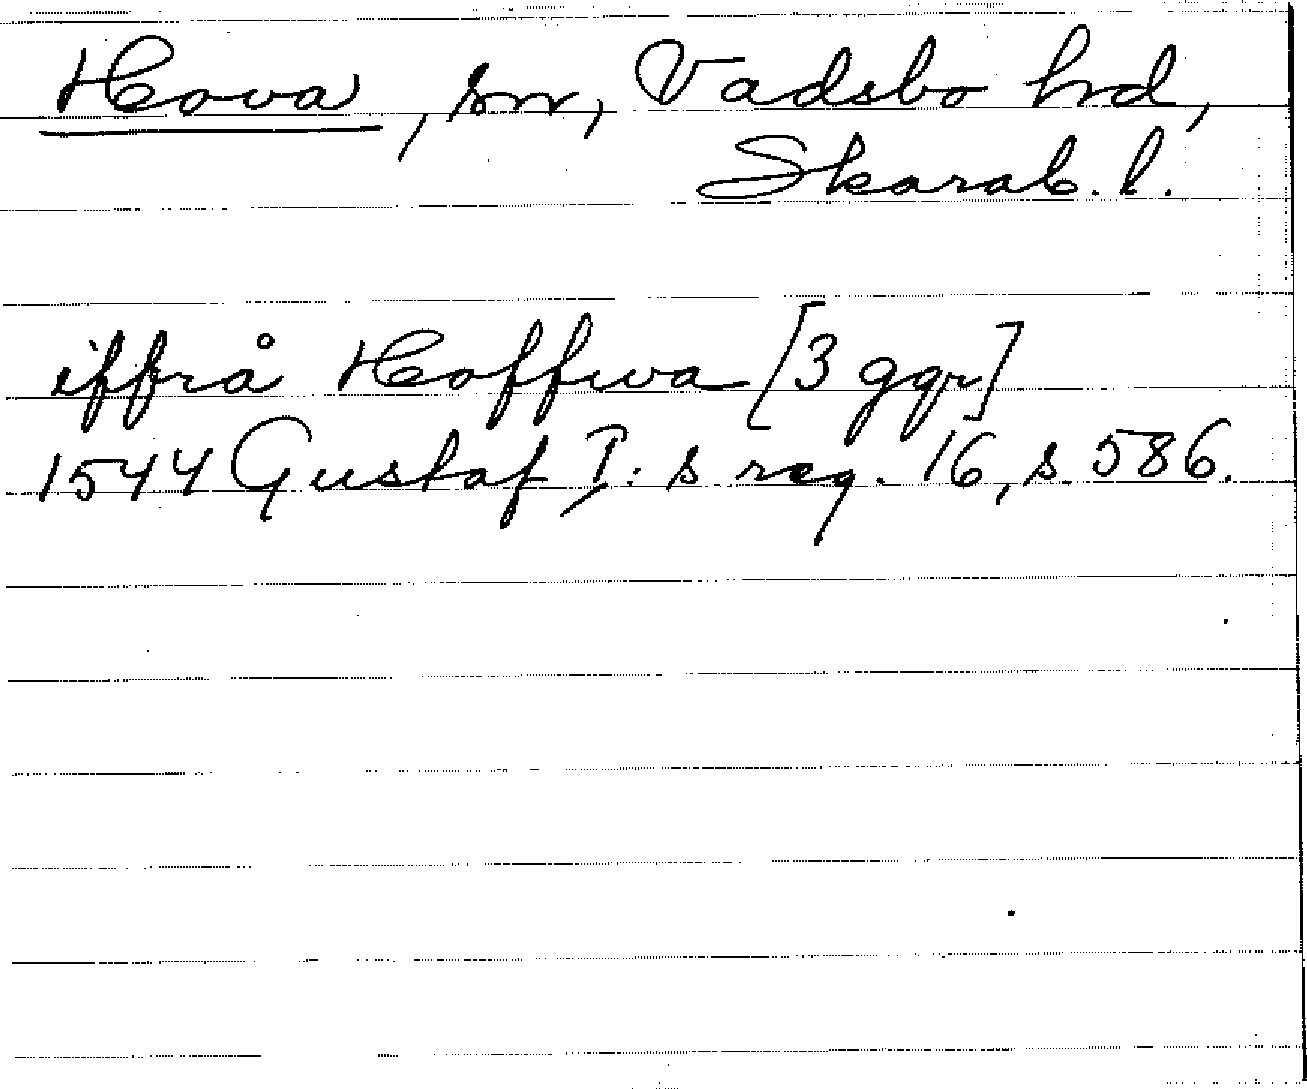 Hova, sn, Vadsbo hrd,
Skarab. l.
iffrå Hoffwa [3 ggr]
1544 Gustaf I:s reg. 16, s 586.